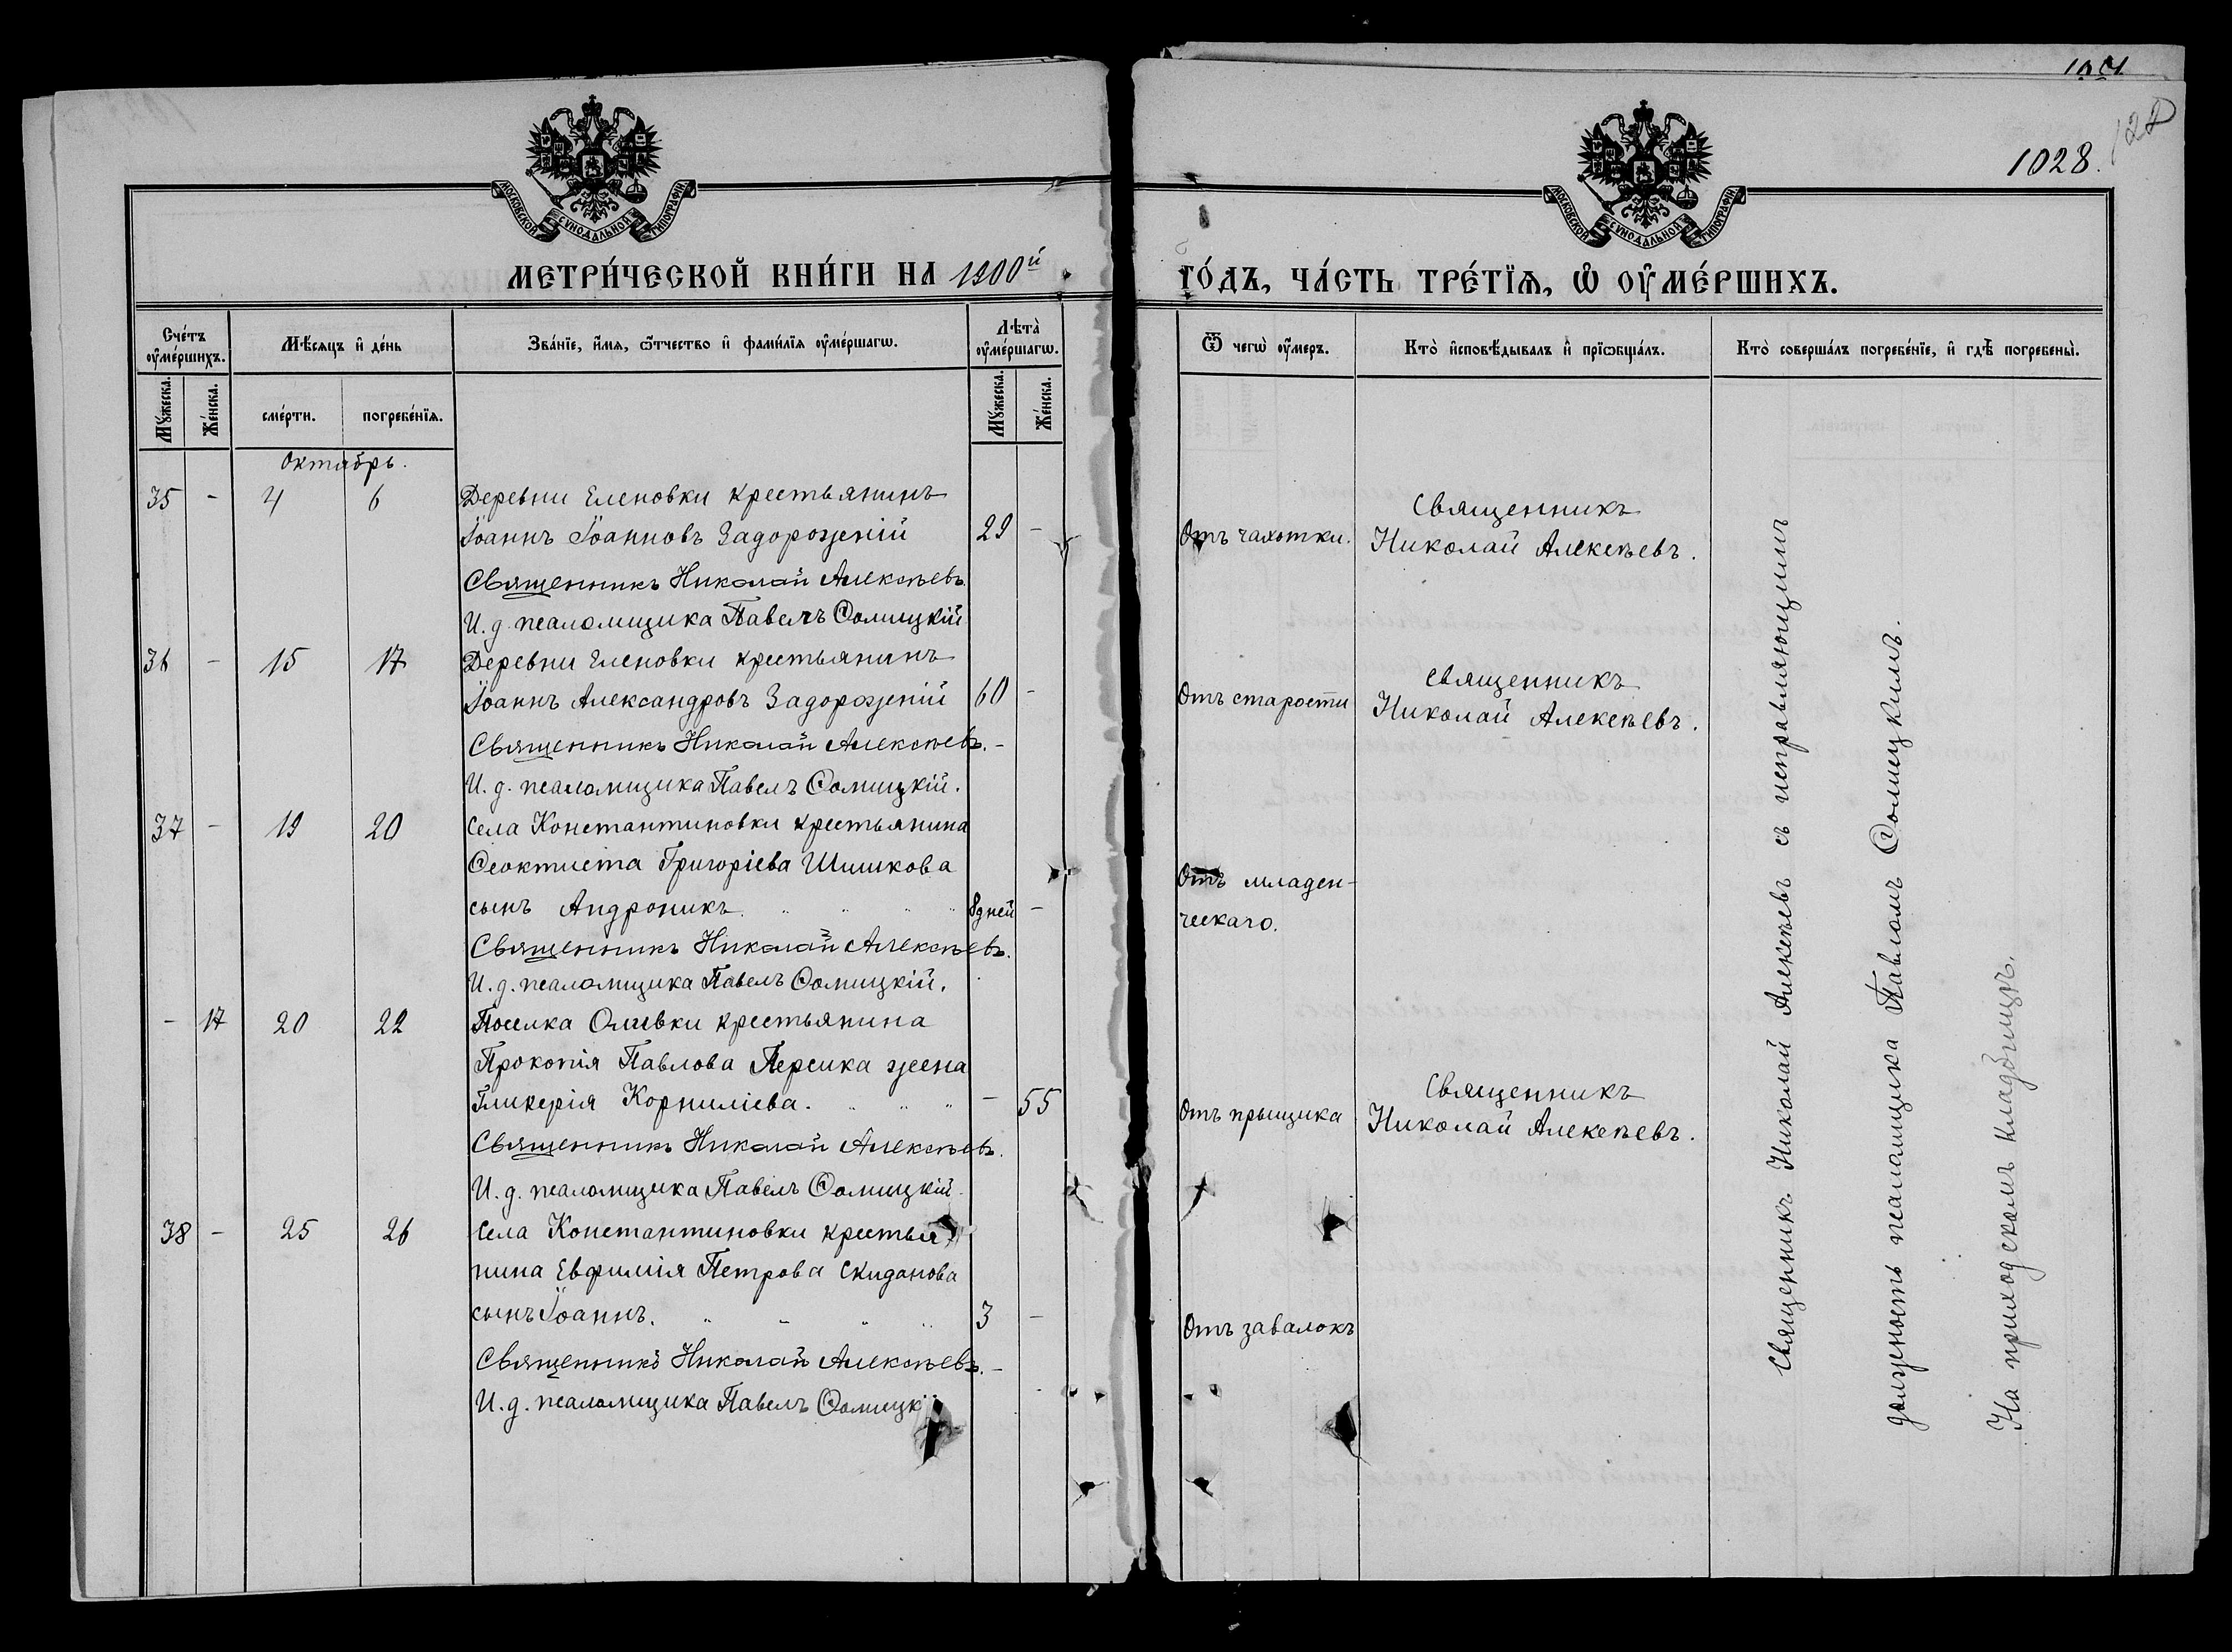 1028.
122
МОСКОВСКОЙ СѴНОДАЛЬНОЙ ТИПОГРАФІИ
МОСКОВСКОЙ СѴНОДАЛЬНОЙ ТИПОГРАФІИ
МЕТРИ́ЧЕСКОЙ КНИ́ГИ НА 1900й
ГО́ДЪ, ЧА́СТЬ ТРЕ́ТЇѦ, Ѡ҆ ОУ҆МЕ́РШИХЪ.
Сче́тъ оу҆ме́ршихъ.
Мѣ́сяцъ и҆ де́нь
Зва́нїе, и҆́мя, ѻ҆́тчество и҆ фами́лїя оу҆ме́ршагѡ.
Лѣта̀ оу҆ме́ршагѡ.
Ѿ чегѡ̀ оу҆́меръ.
Кто̀ и҆сповѣ́дывалъ и҆ прїѡбща́лъ.
Кто̀ соверша́лъ погребе́нїе, и҆ гдѣ̀ погребены̀.
Мꙋ́жеска.
Же́нска.
сме́рти.
погребе́нїя.
Мꙋ́жеска.
Же́нска.
Октябрь.
35 - 4 6 Деревни Еленовки крестьянинъ
Іоаннъ Іоанновъ Задорожній 29 -
Отъ чахотки.
Священникъ
Николай Алексѣевъ.
Священникъ Николай Алексѣевъ
И. д. псаломщика Павелъ Ѳомицкій
36 - 15 17 Деревни Еленовки крестьянинъ
Іоаннъ Александровъ Задорожній 60 -
Отъ старости
Священникъ
Николай Алексѣевъ.
Священникъ Николай Алексѣевъ.-
И. д. псаломщика Павелъ Ѳомицкій.
37 - 19 20 Села Константиновки крестьянина
Ѳеоктиста Григоріева Шишкова
сынъ Андроникъ. 8 дней -
Отъ младен-
ческаго.
Священникъ Николай Алексѣевъ.
И. д. псаломщика Павелъ Ѳомицкій.
- 17 20 22 Поселка Ольевки крестьянина
Прокопія Павлова Персика жена
Гликерія Корниліева. - 55
Отъ прыщика
Священникъ
Николай Алексѣевъ.
Священникъ Николай Алексѣевъ.
И. д. псаломщика Павелъ Ѳомицкій.
38 - 25 26 Села Константиновки крестья
нина Евфимія Петрова Скиданова
сынъ Іоаннъ. 3 -
Отъ завалокъ
Священникъ Николай Алексѣевъ.-
И. д. псаломщика Павелъ Ѳомицкій
Священникъ Николай Алексѣевъ съ исправляющимъ
должность псаломщика Павломъ Ѳомицкимъ.
На приходскомъ кладбищѣ.